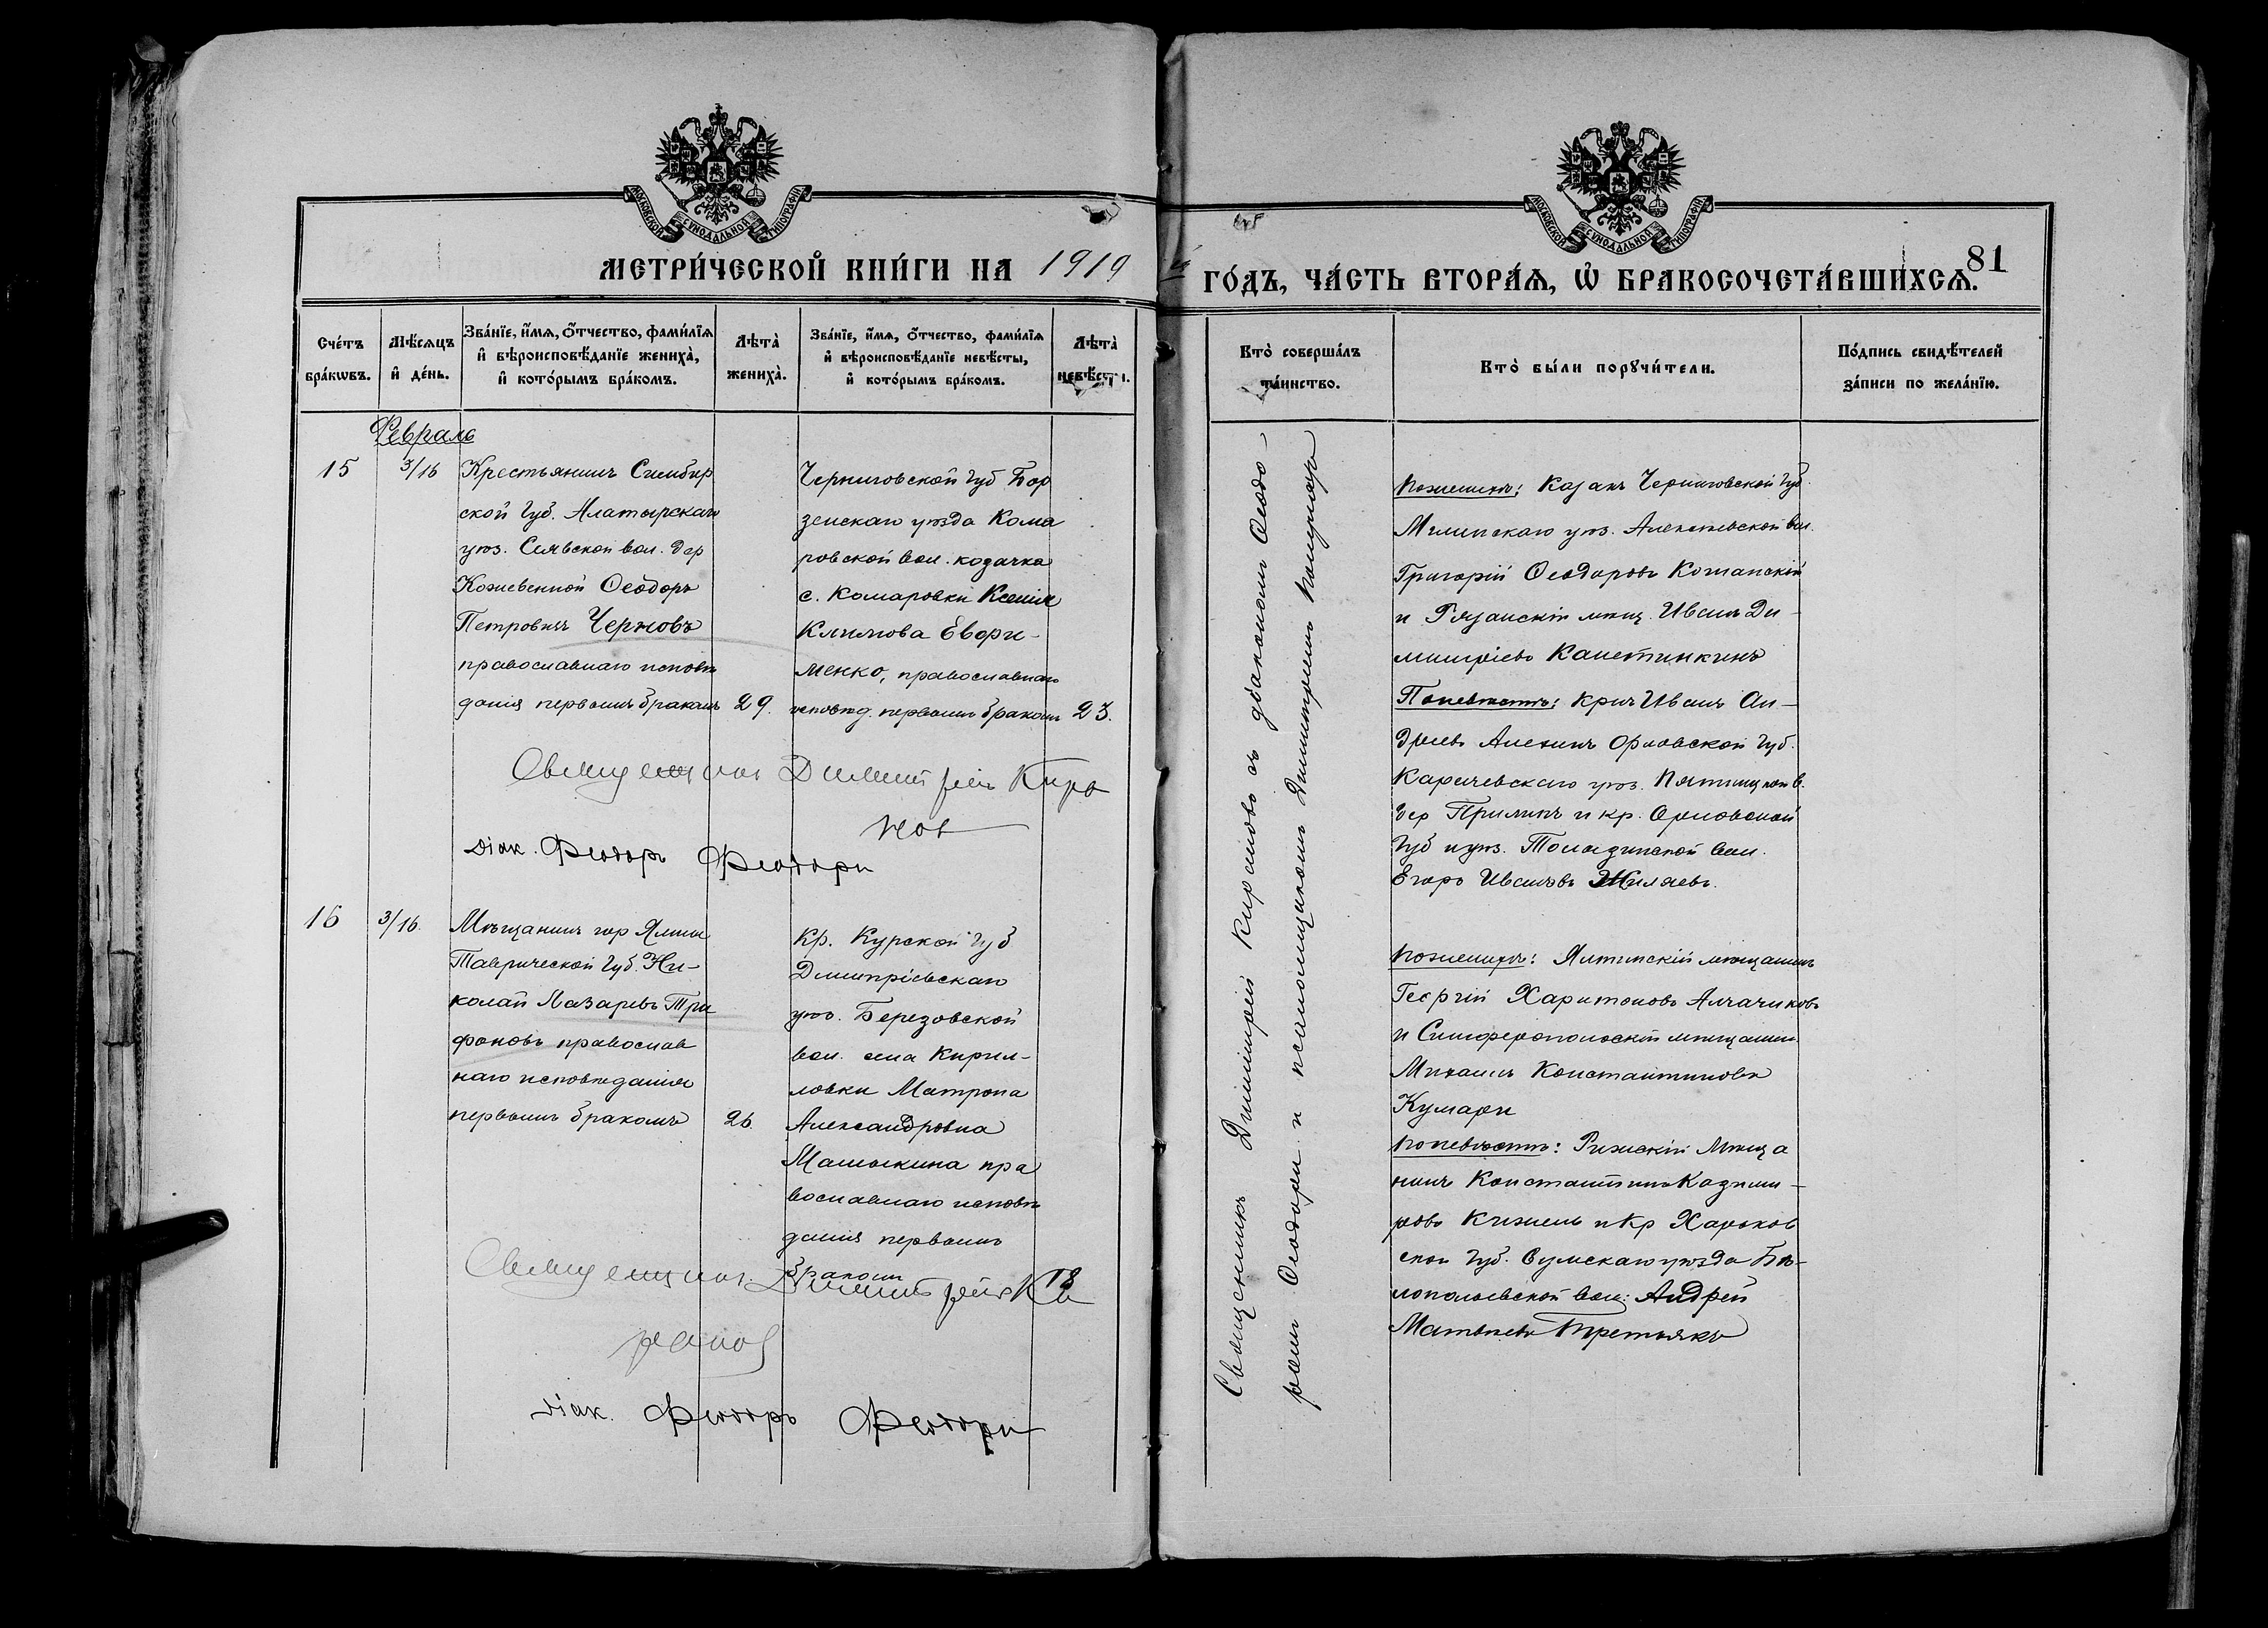 МОСКОВСКОЙ СѴНОДАЛЬНОЙ ТИПОГРАФІИ
МЕТРИ́ЧЕСКОЙ КНИ́ГИ НА 1919
Сче́тъ бра́кѡвъ.
Мѣ́сѧцъ и҆ де́нь.
Зва́нїе, и҆́мѧ, ѻ҆́тчество, фами́лїѧ
и҆ вѣроисповѣ́данїе жениха̀,
и҆ кото́рымъ бра́комъ.
Лѣта̀ жениха̀.
Зва́нїе, и҆́мѧ, ѻ҆́тчество, фами́лїѧ
и҆ вѣроисповѣ́данїе невѣ́сты,
и҆ кото́рымъ бра́комъ.
Лѣта̀ невѣ́сты.
Февраль
15
3/16
Крестьянинъ Симбир
ской Губ. Алатырскаго
уѣз. Сіявской вол. дер
Кожевенной Ѳеодоръ
Петровичъ Черновъ
православнаго исповѣ
данія первымъ бракомъ
29.
Черниговской Губ Бор
зенскаго уѣзда Кома
ровской вол. козачка
с. Комаровки Ксенія
Климова Евфи-
менко, православнаго
исповѣд. первымъ бракомъ
23.
Священникъ Димитрій Кира
нов
Діак. Феодоръ Феодори
16
3/16.
Мѣщанинъ гор Ялты
Таврической Губ. Ни-
колай Лазаревъ Три
фоновъ православ
наго исповѣданія
первымъ бракомъ
26.
Кр. Курской Губ
Дмитріевскаго
уѣз. Березовской
вол. села Кирил-
ловки Матрона
Александровна
Машыкина пра
вославнаго исповѣ
данія первымъ
бракомъ
18
Священник. Димитрій Ки
ранов
Діак. Феодоръ Феодори
МОСКОВСКОЙ СѴНОДАЛЬНОЙ ТИПОГРАФІИ
81
ГО́ДЪ, ЧА́СТЬ ВТОРА́Ѧ, Ѡ҆ БРАКОСОЧЕТА́ВШИХСѦ.
Кто̀ соверша́лъ та́инство.
Кто̀ бы́ли порꙋчи́тели.
По́дпись свидѣ́телей
за́писи по жела́нїю.
Священникъ Димитрій Кирановъ съ діакономъ Ѳеодо-
ромъ Ѳеодори и псаломщикомъ Димитріемъ
По женихѣ: Казакъ Черниговской Губ.
Мглинскаго уѣз. Алексѣевской вол.
Григорій Ѳеодоровъ
и Рязанскій мѣщ. Иванъ Ди-
митріевъ
По невѣстѣ: кр-нъ Иванъ Ан-
дреевъ Алехинъ Орловской Губ.
Карачевскаго уѣз. Пятницкой в.
дер и кр. Орловской
Губ и уѣз. вол.
Егоръ Ивановъ Жиляевъ.
По женихѣ: Ялтинскій мѣщанинъ
Георгій Харитоновъ Алчачиковъ
и Симферопольскій мѣщанин
Михаилъ Константиновъ
Кумари
По невѣстѣ: Рижскій мѣща
нинъ Константинъ Казими-
ровъ и Кр Харьков
ской Губ. Сумскаго уѣзда Бѣ-
лопольевской вол: Андрей
Матвѣевъ Третьякъ